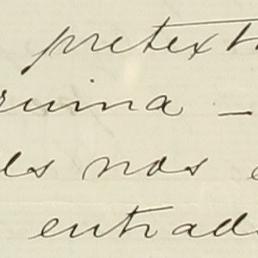 pretext
ruina —
ds nos
entrad